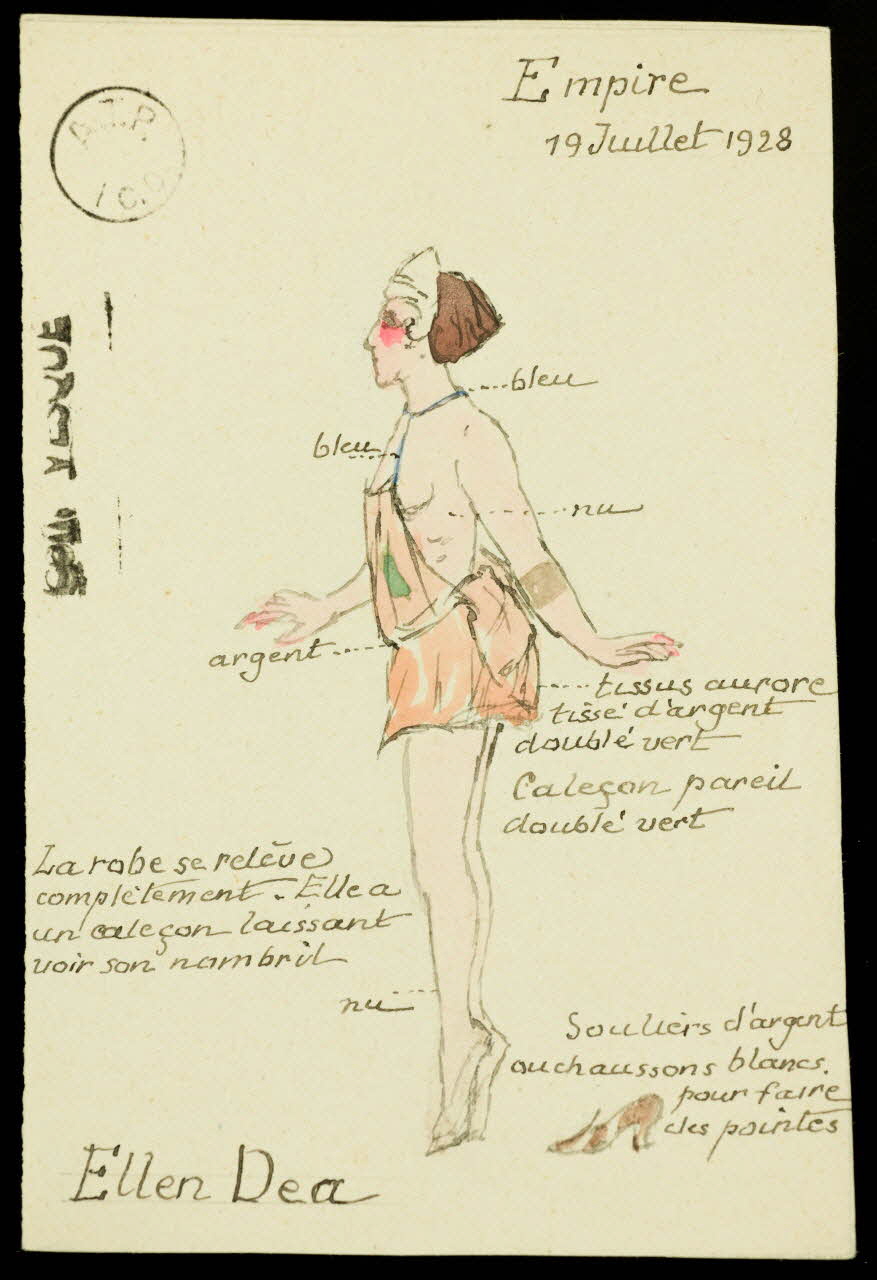 Empire
19 Juillet 1928
A.T.P.
bleu
bleu
nu
argent
tissus aurore
tissé d'argent
doublé vert
Caleçon pareil
doublé vert
La robe se relève
complètement. Elle a
un caleçon laissant
voir son nombril
nu
Souliers d'argent
ou chaussons blancs.
pour faire
des pointes
Ellen Dea